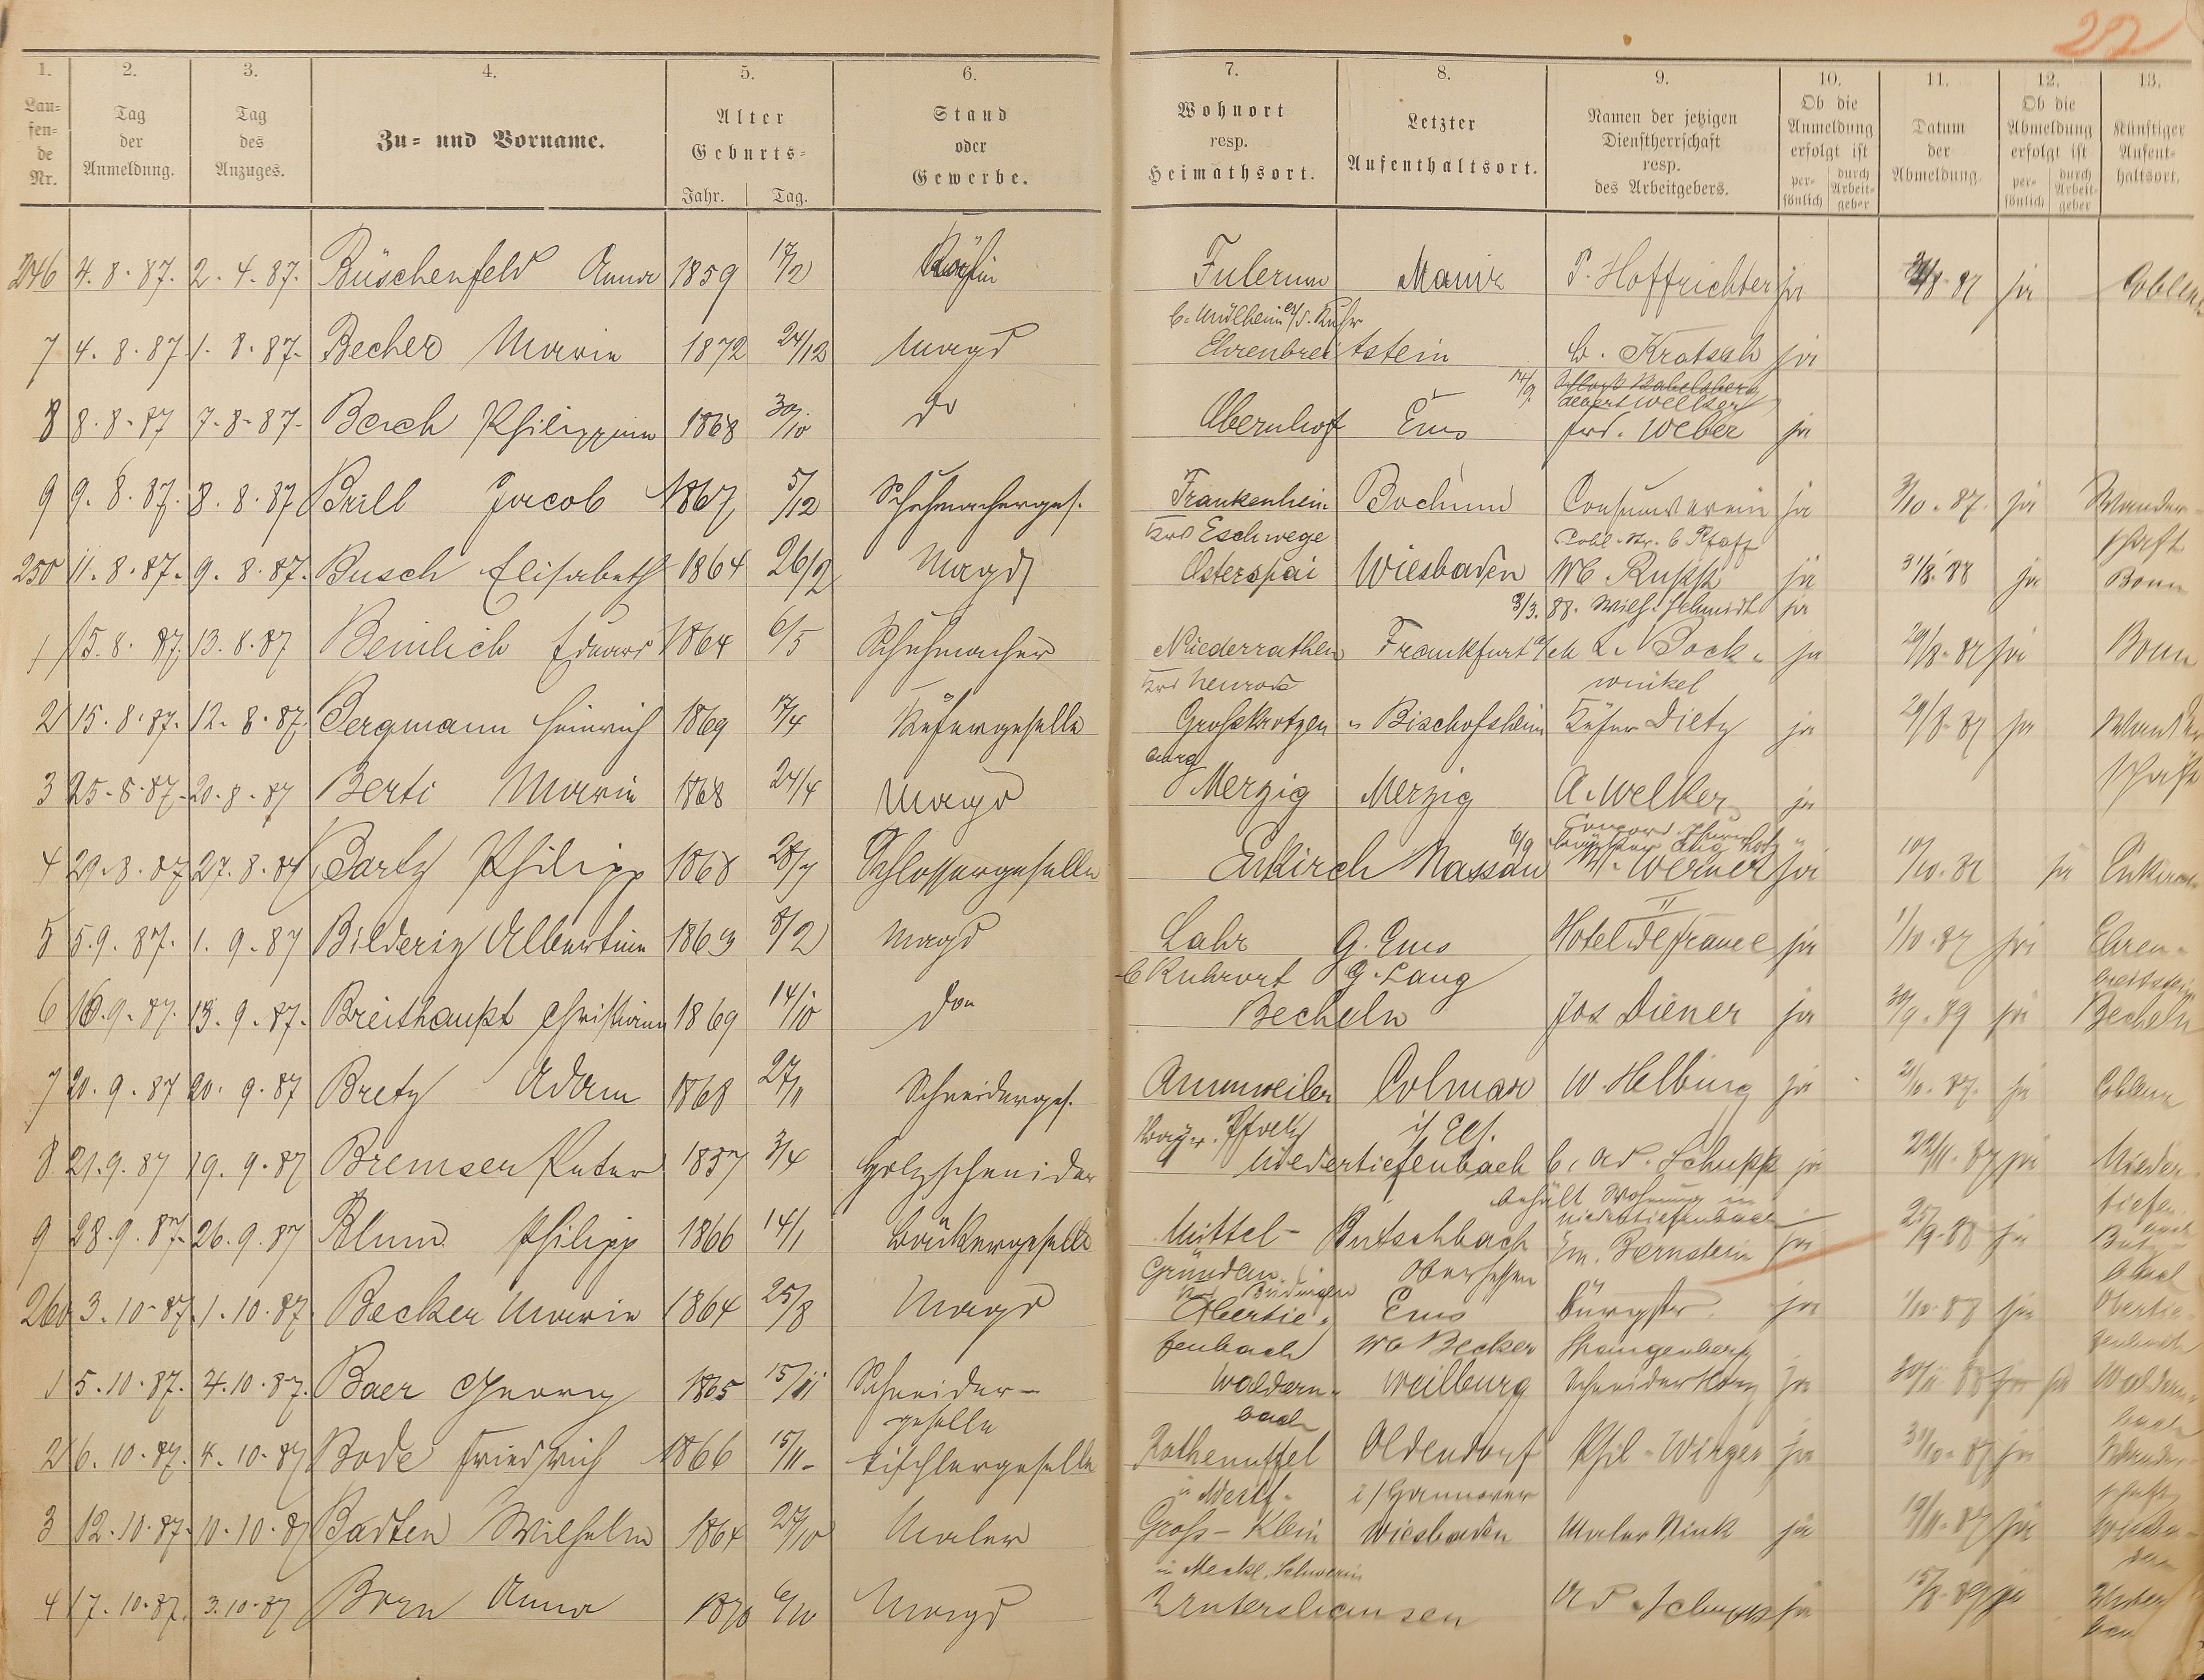 27
1. 2. 3. 4. 5. 6. 7. 8. 9. 10. 11. 12. 13.
Lau=
fen=
de
Nr.
Tag
der
Anmeldung.
Tag
des
Anzuges.
Zu= und Vorname.
Alter
Geburts=
Jahr. Tag.
Stand
oder
Gewerbe.
Wohnort
resp.
Heimathsort.
Letzter
Aufenthaltsort.
Namen der jetzigen
Dienstherrschaft
resp.
des Arbeitgebers.
Ob die
Anmeldung
erfolgt ist
per=
sönlich
durch
Arbeit=
geber
Datum
der
Abmeldung.
Ob die
Abmeldung
erfolgt ist
per=
sönlich
durch
Arbeit=
geber
Künftiger
Aufent=
haltsort.
246 4. 8. 87. 2. 4. 87. Büschenfeld Anna 1859 17/2 Köchin Fulerum Mainz P. Hoffrichter ja 8. 87 ja Coblenz
b. Mülheim a/d. Ruhr
7 4. 8. 87 1. 8. 87. Becher Maria 1872 24/12 Magd Ehrenbreitstein Kratsch ja
14/9
Albert Welker
8 8. 8. 87 7. 8. 87. Philippine 1868 30/10 do Obernhof Ems Weber ja
9 9. 8. 87. 8. 8. 87 Brill Jacob 1867 5/12 Schuhmacherges. Frankenhein Bochum Consumverein ja 3/10. 87. ja Wander-
Krs Eschwege Cobl. Str. b Pfaff schaft
250 11. 8. 87. 9. 8. 87. Busch Elisabeth 1864 26/2 Magd Osterspai Wiesbaden Wb. Rupp ja 31/8. 88 ja Bonn
3/3. 88. Wilh. Schmidt ja
1 15. 8. 87. 13. 8. 87 Beinlich Eduard 1864 6/5 Schuhmacher Niederrathen Frankfurt a/M L. Pock- ja 29/8. 87 ja Bonn
Krs Neurode winkel
2 15. 8. 87. 12. 8. 87. Bergmann Heinrich 1869 17/4 Küfergeselle Grosskrotzen- Bischofsheim Küfer Dietz ja 29/8. 87 ja Wander
burg schaft
3 25. 8. 87. 20. 8. 87 Berti Maria 1868 24/4 Magd Merzig Merzig A. Welker ja
6/9
4 29. 8. 87 27. 8. 87 Bartz Philipp 1868 28/7 Schlossergeselle Enkirch Nassau W. Werner ja 10/10. 87 ja Enkirch
II
5 5. 9. 87. 1. 9. 87 Albertine 1863 8/2 Magd Lahr G. Ems Hotel de France ja 1/10. 87 ja Ehren-
b Ruhrort G. Lang breitstein
6 16. 9. 87. 13. 9. 87. Breithaupt Christiane 1869 14/10 do Becheln Jos Diener ja 30/9. 89 ja Becheln
7 20. 9. 87 20. 9. 87 Bretz Adam 1868 27/11 Schneiderges. Annweiler Colmar W. Helbing ja 87. ja Coblenz
Bayr. Pfalz i/ Els.
8 21. 9. 87 19. 9. 87 Bremser Peter 1857 3/4 Holzschneider Niedertiefenbach b. Ad. Schupp ja 22/11. 87 ja Nieder-
behält Wohnung in tiefen
Niedertiefenbach bach
9 28. 9. 87. 26. 9. 87 Blum Philipp 1866 14/1 Bäckergeselle Mittel- Butschbach Em. Bernstein ja 25/9. 88 ja
Gründau Oberhessen
Krs Büdingen
260 3. 10. 87. 1. 10. 87. Becker Maria 1864 25/8 Magd Obertie- Ems ja 1/10. 88 ja Obertie-
fenbach Wb Becker Spangenberg fenbach
1 5. 10. 87. 4. 10. 87. Baer Georg 1865 15/11 Schneider- Waldern- Weilburg Schneider ja 88 ja Waldern-
geselle bach bach
2 6. 10. 87. 4. 10. 87 Bode Friedrich 1866 15/11. Tischlergeselle Rothenuffel Oldendorf Phil. Wirges ja 31/10. 87 ja Wander-
i Westf. i/ Hannover schaft
3 12. 10. 87. 10. 10. 87 Badten Wilhelm 1864 27/10 Maler Gross-Klein Wiesbaden Maler Rink ja 87 ja Wiesba-
in Meckl. Schwerin den
4 17. 10. 87. 3. 10. 87 Born Anna 1870 6/10 Magd Ad. Schupp ja 89 ja